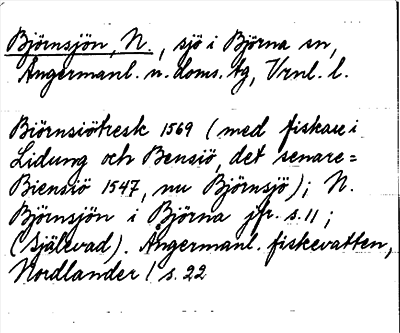 Björnsjön, N., sjö i Björna sn,
Ångermanl. n. doms. tg, Vrnl. l.
Biörnsiötresk 1569 (med fiskare i
Lidung och Bensiö, det senare =
Biensiö 1547, nu Björnsjö); N.
Björnsjön i Björna jfr. s. 11;
(Själevad). Ångermanl. fiskevatten,
Nordlander / s. 22